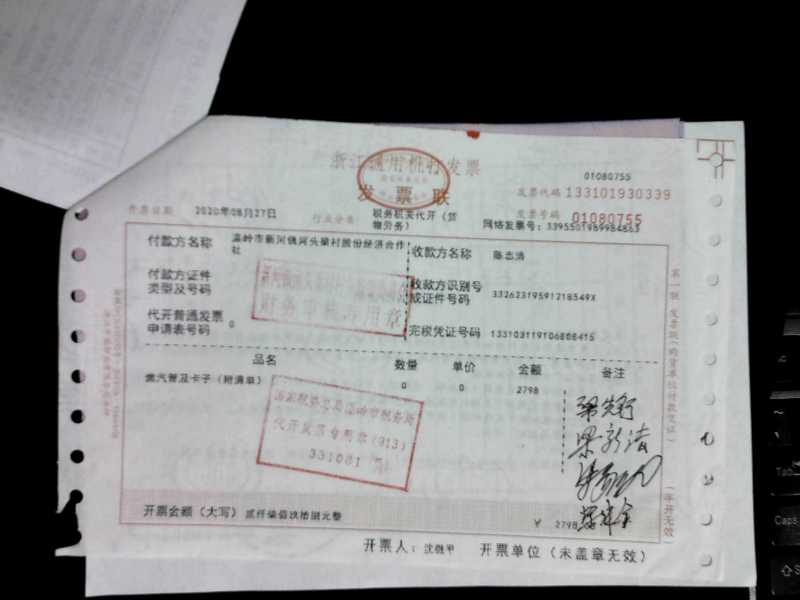 浙江通用机打发票
01080755
发票联
发票代码 133101930339
开票日期 2020年08月27日
行业分类 税务机关代开（货物劳务）
发票号码 01080755
网络发票号：3395501989984863
付款方名称 温岭市新河镇河头梁村股份经济合作社
收款方名称 陈志清
付款方证件类型及号码
收款方识别号或证件号码 33262319591218549X
代开普通发票申请表号码 0
完税凭证号码 133103119106808415
财务审核专用章
品名 数量 单价 金额 备注
燃汽管及卡子（附清单） 0 0 2798
国家税务总局温岭市税务局
代开发票专用章（913）
331081
开票金额（大写）贰仟柒佰玖拾捌元整
￥ 2798
开票人：沈继甲 开票单位（未盖章无效）
（手开无效）